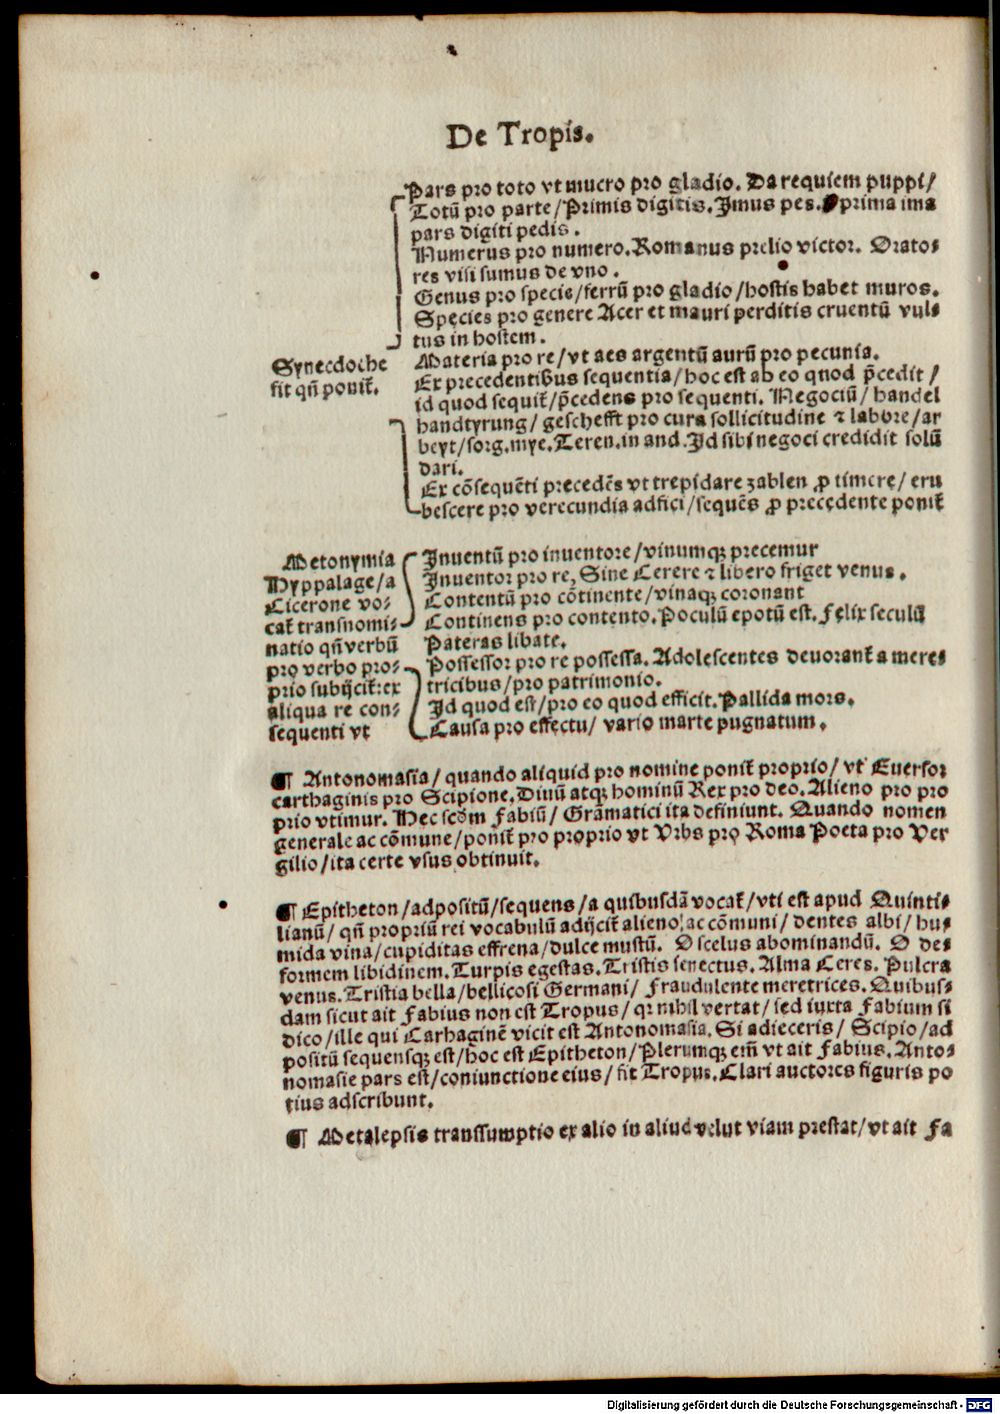 De Tropis.
Pars pro toto vt mucro pro gladio. Da requiem puppi/
Totū pro parte/Primis digitis. Imus pes. prima ima
pars digiti pedis.
Numerus pro numero. Romanus prelio victor. Orato-
res visi sumus de vno.
Genus pro specie/ferrū pro gladio/hostis habet muros.
Species pro genere Acer et mauri perditis cruentū vul-
tus in hostem.
Synecdoche
fit qñ poniť.
Materia pro re/vt aes argentū aurū pro pecunia.
Ex precedentibus sequentia/hoc est ab eo quod p̄cedit/
id quod sequiť/p̄cedens pro sequenti. Negociū/handel
handtyrung/geschefft pro cura sollicitudine ⁊ labore/ar
beyt/sorg. mye. Teren. in and. Id sibi negoci credidit solū
dari.
Ex cōsequēti precedēs vt trepidare zablen ꝓ timere/eru
bescere pro verecundia adfici/sequēs ꝓ precędente poniť
Metonymia
Hyppalage/a
Cicerone vo-
cať transnomi-
natio qñ verbū
pro verbo pro-
prio subijciť: ex
aliqua re con-
sequenti vt
Inuentū pro inuentore/vinumqꝫ precemur
Inuentor pro re, Sine Cerere ⁊ libero friget venus.
Contentū pro cōtinente/vinaqꝫ coronant
Continens pro contento. Poculū epotū est. Felix seculū
Pateras libate.
Possessor pro re possessa. Adolescentes deuoranť a mere-
tricibus/pro patrimonio.
Id quod est/pro eo quod efficit. Pallida mors.
Causa pro effectu/vario marte pugnatum.
¶ Antonomasia/quando aliquid pro nomine poniť proprio/vt Euersor
carthaginis pro Scipione. Diuū atqꝫ hominū Rex pro deo. Alieno pro pro
prio vtimur. Hec scďm Fabiū/Grāmatici ita definiunt. Quando nomen
generale ac cōmune/poniť pro proprio vt Vrbs pro Roma Poeta pro Ver
gilio/ita certe vsus obtinuit.
¶ Epitheton/adpositū/sequens/a quibusdā vocať/vti est apud Quinti-
lianū/qñ propriū rei vocabulū adijciť alieno/ac cōmuni/dentes albi/hu-
mida vina/cupiditas effrena/dulce mustū. O scelus abominandū. O de-
formem libidinem. Turpis egestas. Tristis senectus. Alma Ceres. Pulcra
venus. Tristia bella/bellicosi Germani/Fraudulente meretrices. Quibus-
dam sicut ait Fabius non est Tropus/qꝛ nihil vertat/sed iuxta Fabium si
dico/ille qui Carhaginē vicit est Antonomasia. Si adieceris/Scipio/ad
positū sequensqꝫ est/hoc est Epitheton/Plerumqꝫ em̄ vt ait Fabius. Anto-
nomasie pars est/coniunctione eius/fit Tropus. Clari auctores figuris po
tius adscribunt.
¶ Metalepsis transsumptio ex alio in aliud velut viam prestat/vt ait Fa
Digitalisierung gefördert durch die Deutsche Forschungsgemeinschaft - DFG